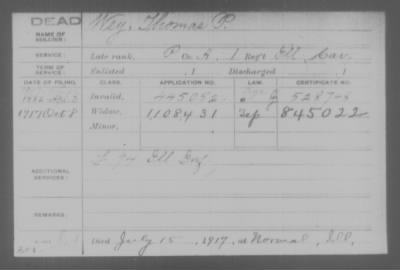 DEAD
NAME OF SOLDIER:
Wey, Thomas P.
SERVICE:
Late rank, P Co. A, 1 Reg't Ill Cav.
TERM OF SERVICE:
Enlisted , 1 Discharged , 1
DATE OF FILING. CLASS. APPLICATION NO. LAW. CERTIFICATE NO.
1882 3 Invalid, 445052 528
1917 Oct 8 Widow, 1108431 Sep 845022
Minor,
ADDITIONAL SERVICES:
94 Ill Inf
REMARKS:
Died July 15, 1917, at Normal, Ill.